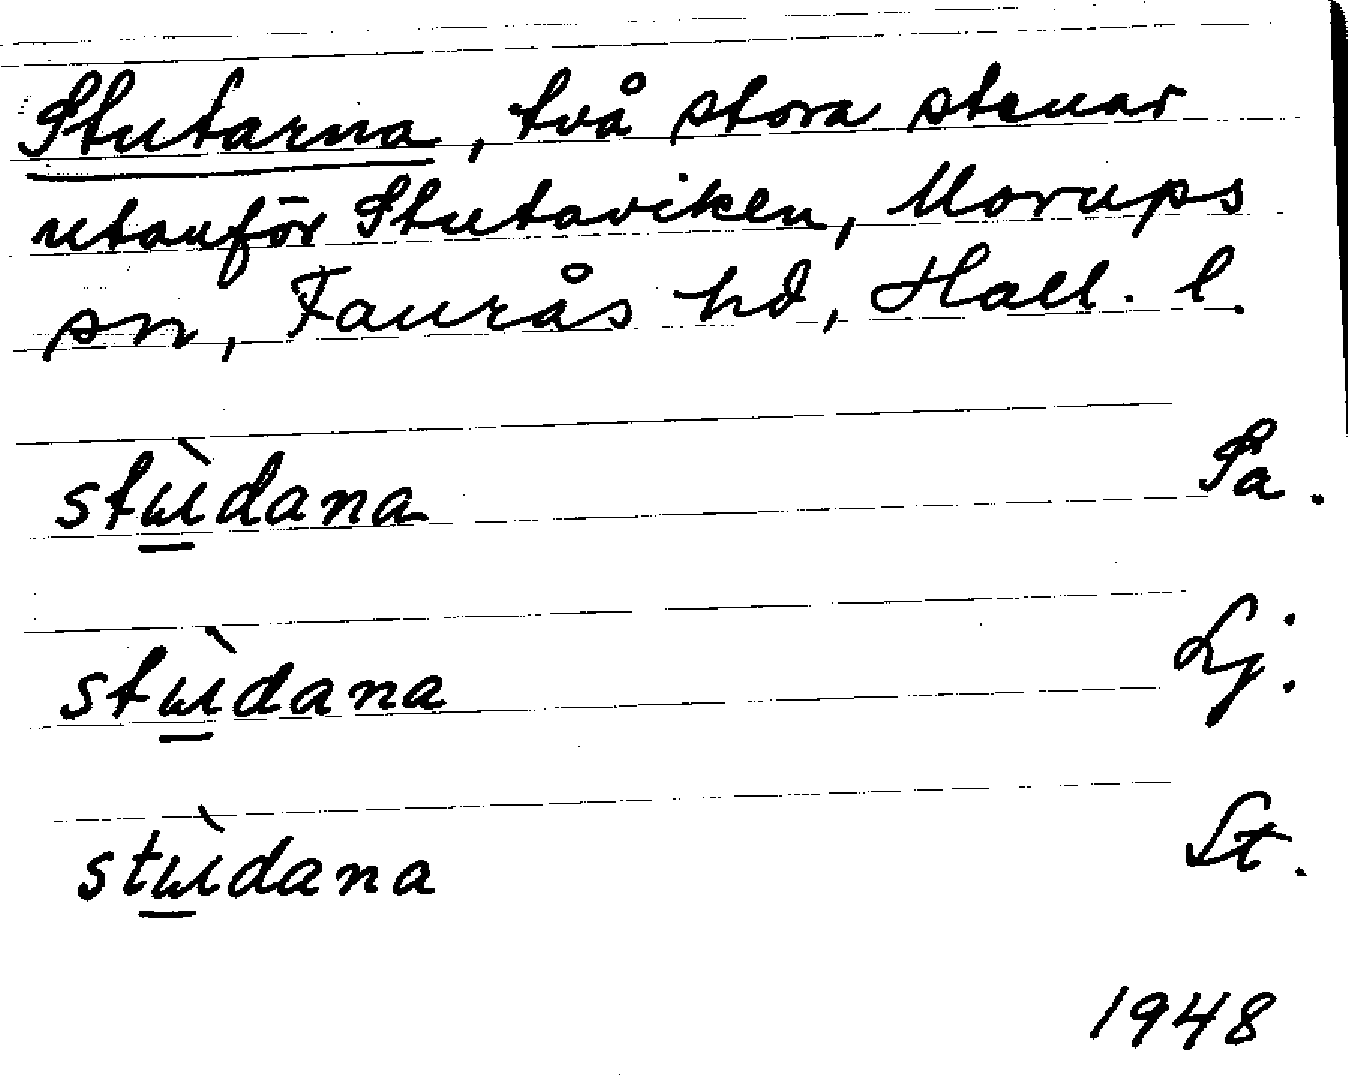 Stutarna, två stora stenar
utanför Stutaviken, Morups
sn, Faurås hd, Hall. l.
stɯ̀dana Så.
stɯ̀dana Lj.
stɯ̀dana St.
1948